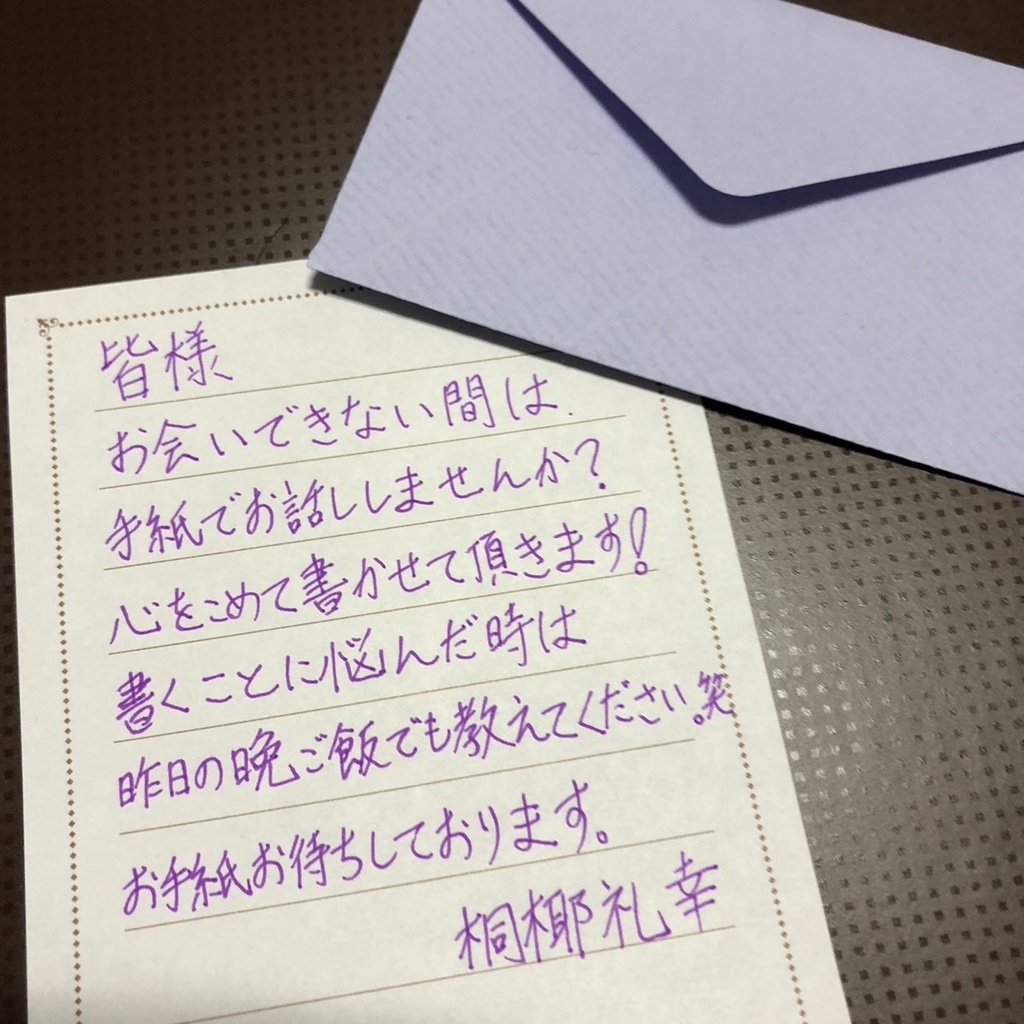 皆様
お会いできない間は、
手紙でお話ししませんか？
心をこめて書かせて頂きます！
書くことに悩んだ時は
昨日の晩ご飯でも教えてください。笑
お手紙お待ちしております。
桐椰礼幸